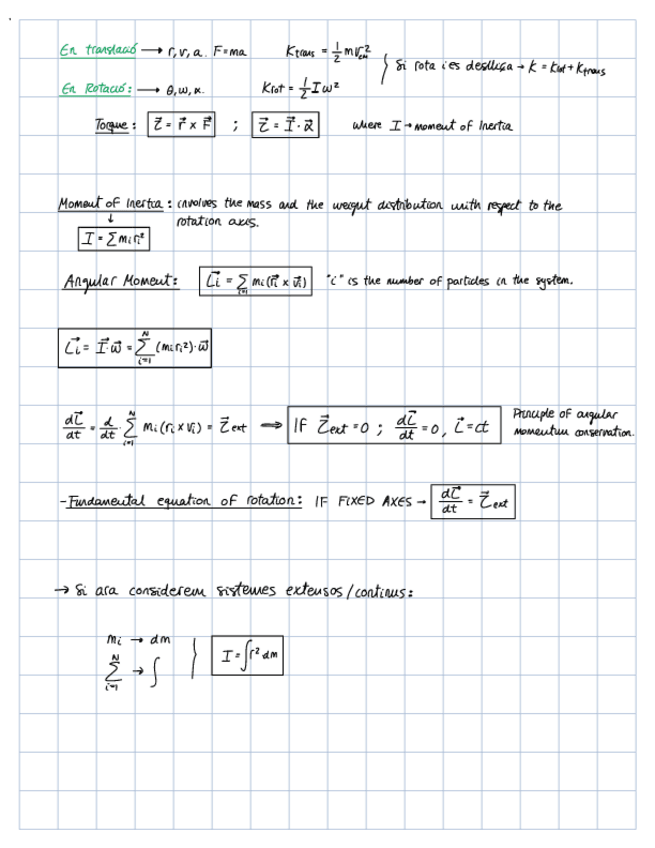 En translació → r, v, a. F=ma   K_trans = 1/2 m v_cm²
} Si rota i es desllaça → K = K_rot + K_trans
En Rotació: → θ, ω, α.   K_rot = 1/2 I ω²
Torque: τ⃗ = r⃗ × F⃗ ; τ⃗ = I⃗ · α⃗   where I → moment of Inertia
Moment of Inertia: involves the mass and the weigut distribution with respect to the
rotation axis.
↓
I = ∑ mᵢ rᵢ²
Angular Moment: L⃗ᵢ = ∑_{i=1} mᵢ (r⃗ᵢ × v⃗ᵢ)   "i" is the number of particles in the system.
L⃗ᵢ = I⃗·ω⃗ = ∑_{i=1}^{N} (mᵢ rᵢ²)·ω⃗
dL⃗/dt = d/dt · ∑_{i=1}^{N} mᵢ (rᵢ × vᵢ) = τ⃗_ext ⇒ IF τ⃗_ext = 0 ; dL⃗/dt = 0, L⃗ = ct   Principle of angular
momentum conservation.
- Fundamental equation of rotation: IF FIXED AXES → dL⃗/dt = τ⃗_ext
→ Si ara considerem sistemes extensos/continus:
mᵢ → dm
∑_{i=1}^{N} → ∫ } I = ∫ r² dm